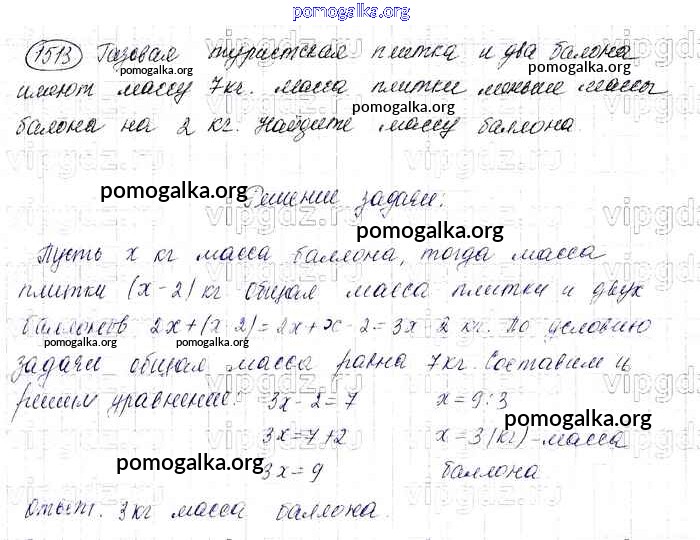 pomogalka.org
1513 Газовая туристская плитка и два балона
pomogalka.org pomogalka.org
имеют массу 7кг. масса плитки меньше массы
pomogalka.org
балона на 2 кг. Найдите массу баллона.
vipgdz.ru
pomogalka.org Решение задачи:
pomogalka.org
Пусть х кг масса баллона, тогда масса
плитки (х-2) кг общая масса плитки и двух
баллонов 2х+(х-2)=2х+х-2=3х-2 кг. По условию
pomogalka.org pomogalka.org
задачи общая масса равна 7кг. Составим и
решим уравнение: 3х-2=7 х=9:3
pomogalka.org
3х=7+2 х=3(кг)-масса
pomogalka.org
3х=9 баллона
Ответ: 3кг масса баллона.